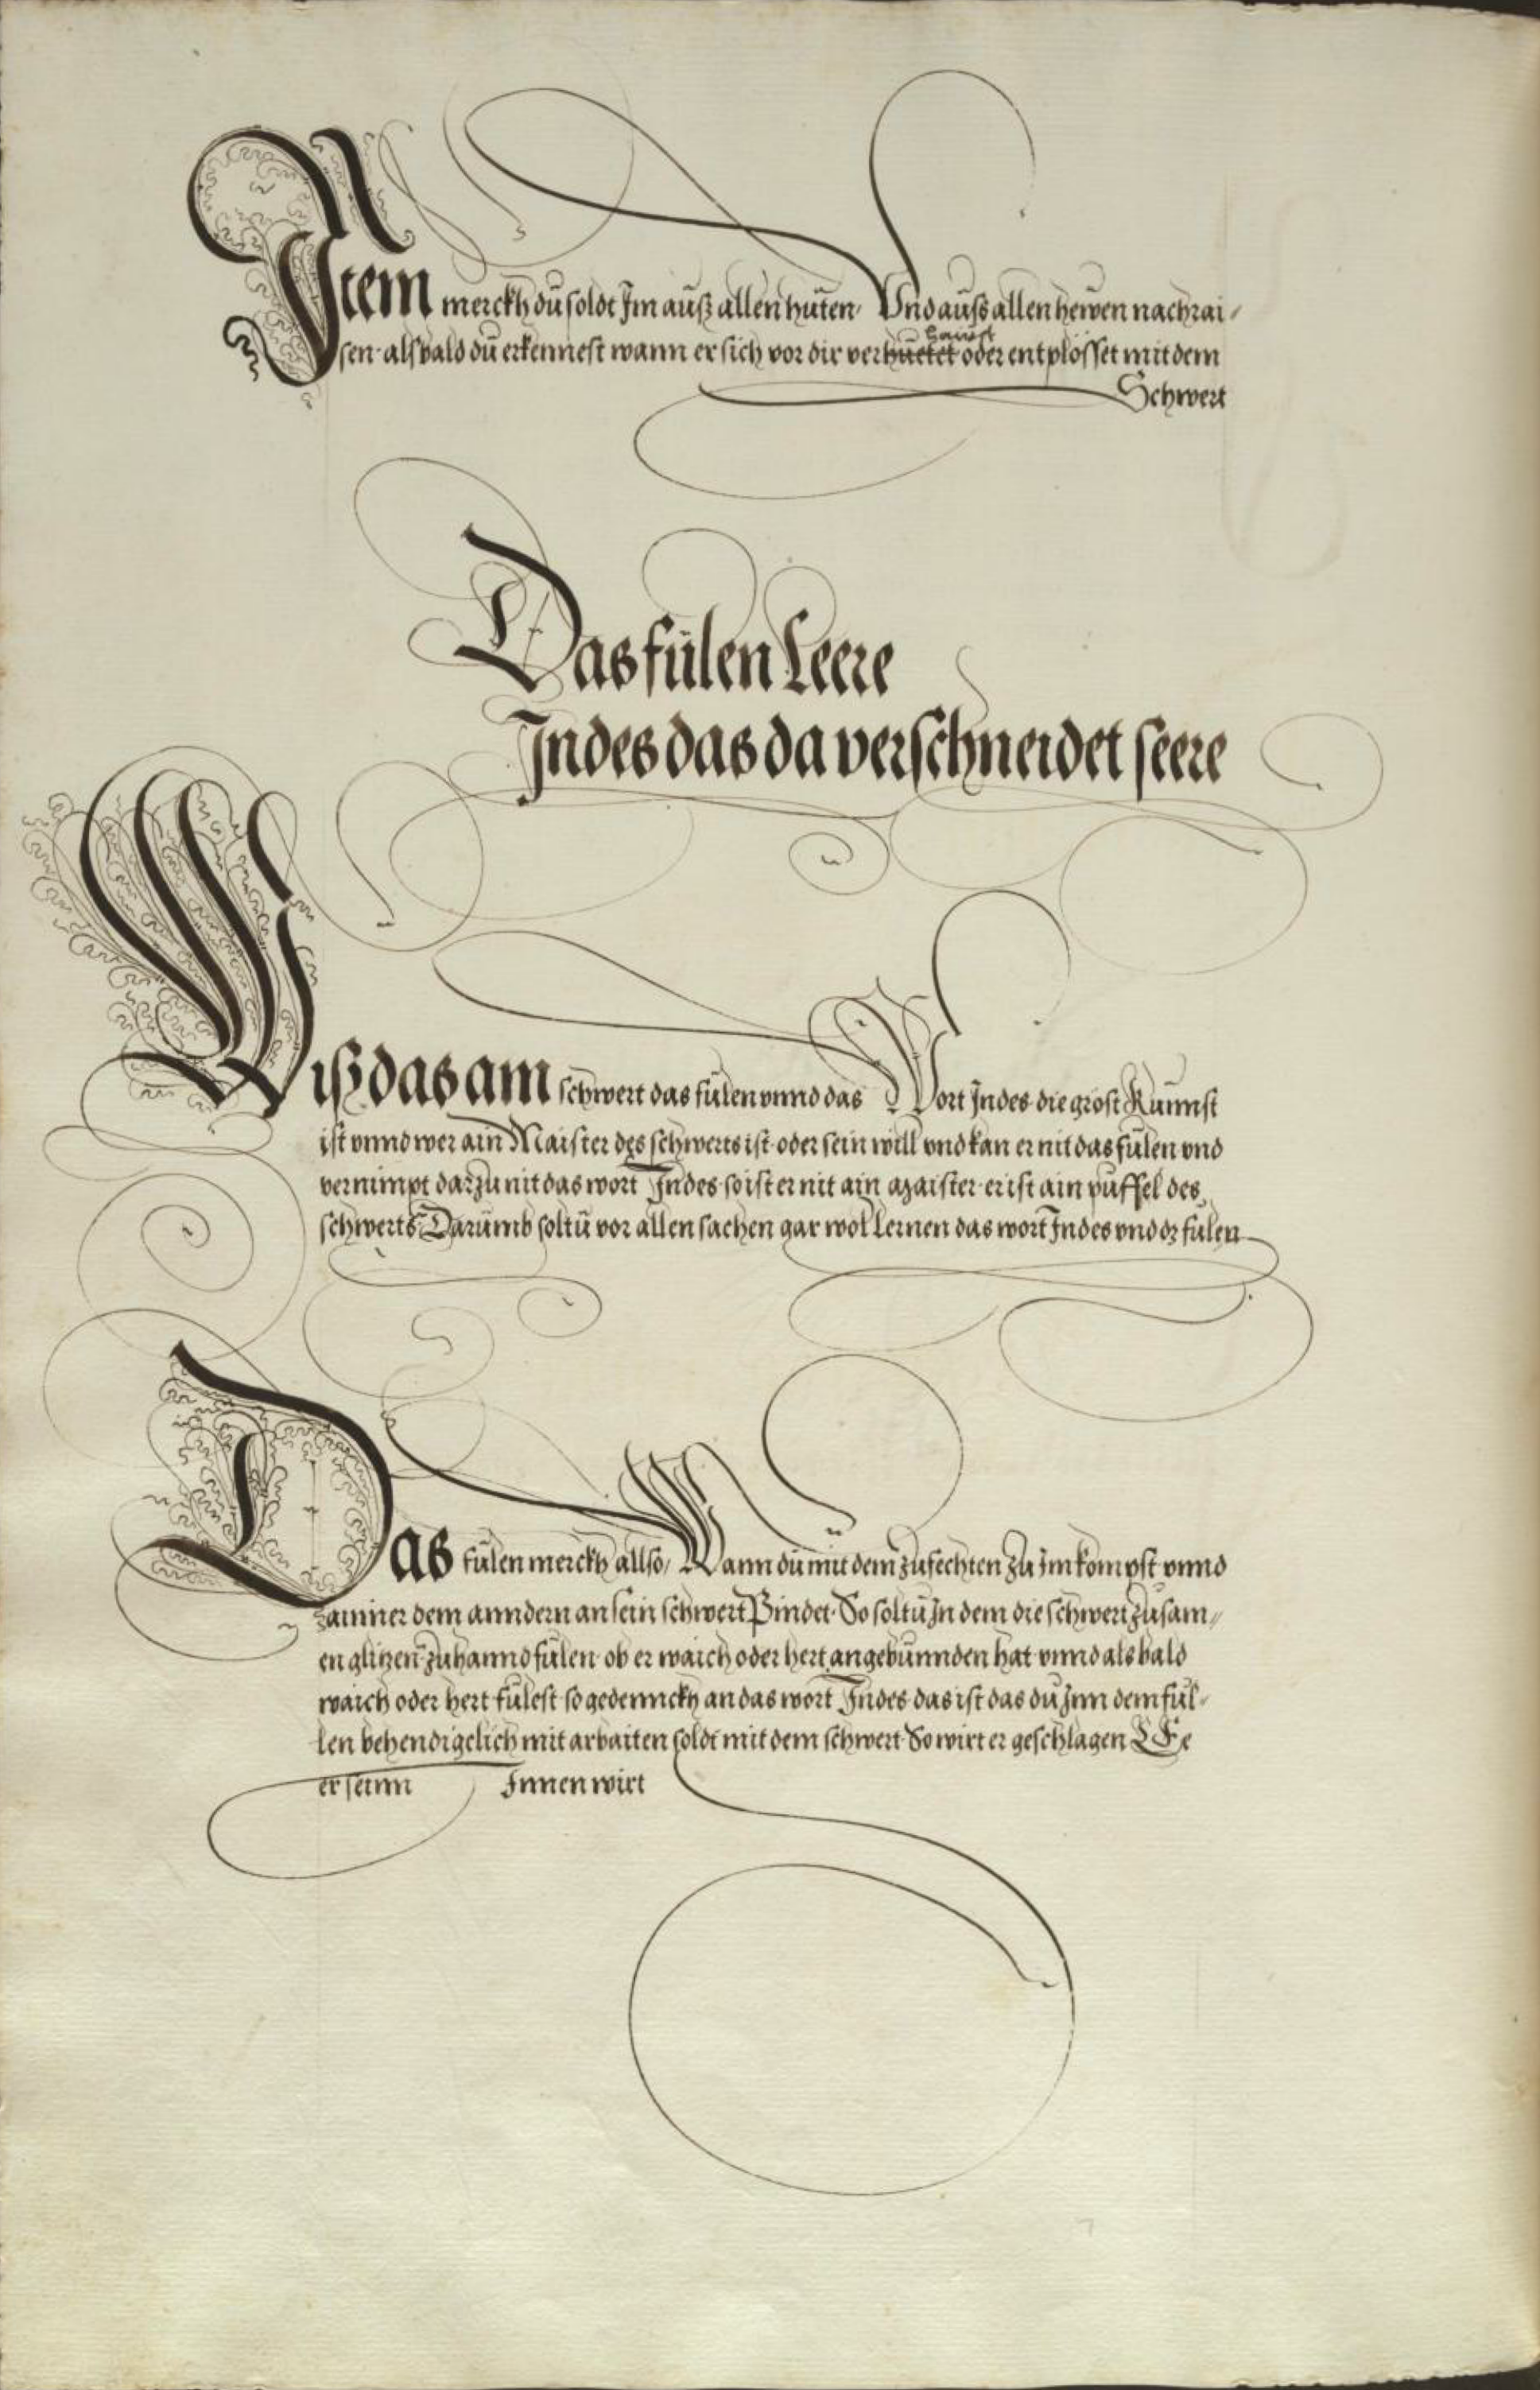 Item merckh du soldt Im auß allen huten / Und auß allen hewen nachrai/
hawet
sen. als bald du erkennest wann er sich vor dir verhuetet oder entplösset mit dem
Schwert
Das fülen Leere
Indes das da verschneidet seere
Wiß das am schwert das fülen unnd das Wort Indes die gröst Kunnst
ist unnd wer ain Maister des schwerts ist. oder sein will und kan er nit das fülen und
vernimpt darzu nit das wort Indes. so ist er nit ain Maister. er ist ain püffel des
schwerts. Darumb soltu vor allen sachen gar wol lernen das wort Indes und dz fülen
Das fülen merckh allso / Wann du mit dem zufechten zu im kompst unnd
ainner dem anndern an sein schwert Bindet. So soltu In dem die schwert zusam//
en glitzen. zuhannd fülen. ob er waich oder hert angebunnden hat unnd als bald
waich oder hert fülest so gedennckh an das wort Indes. das ist das du Inn dem fül/
len behendigclich mit arbaiten soldt mit dem schwert. So wirt er geschlagen Ee
er seinn Innen wirt